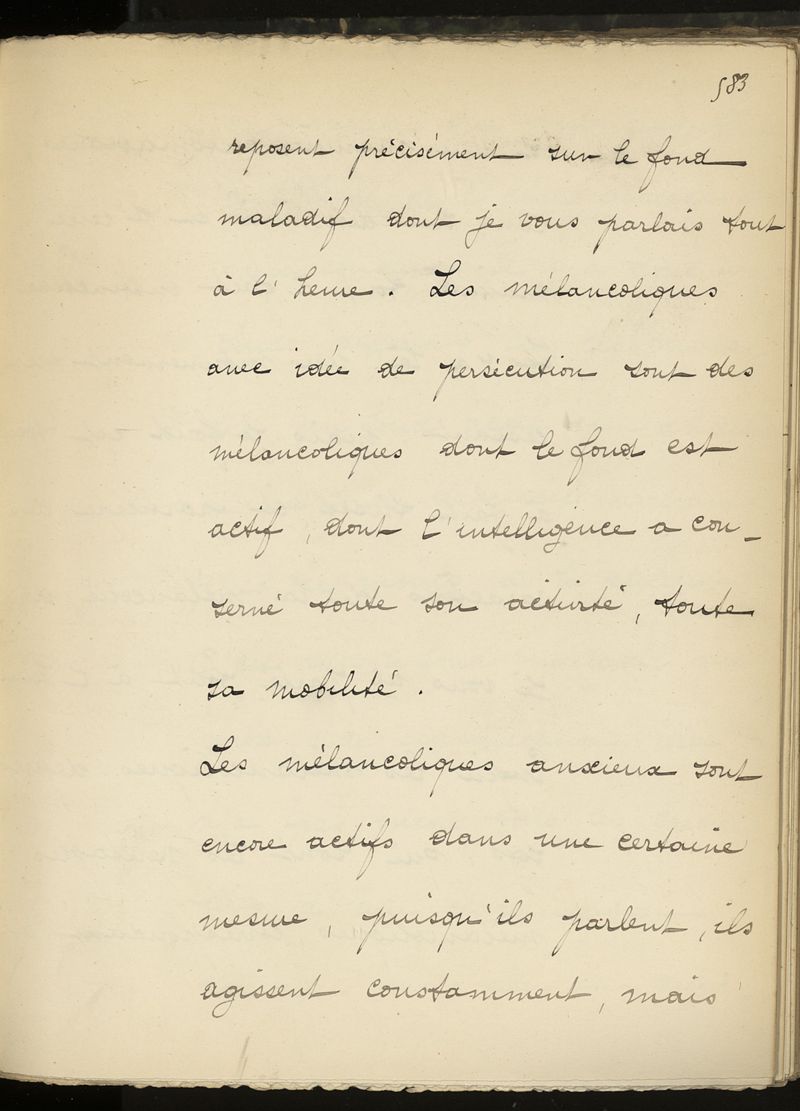 583
reposent précisément sur le fond
maladif dont je vous parlais tout
à l'heure. Les mélancoliques
avec idée de persécution sont des
mélancoliques dont le fond est
actif, dont l'intelligence a con_
servé toute son activité, toute
sa mobilité.
Les mélancoliques anxieux sont
encore actifs dans une certaine
mesure, puisqu'ils parlent, ils
agissent constamment, mais